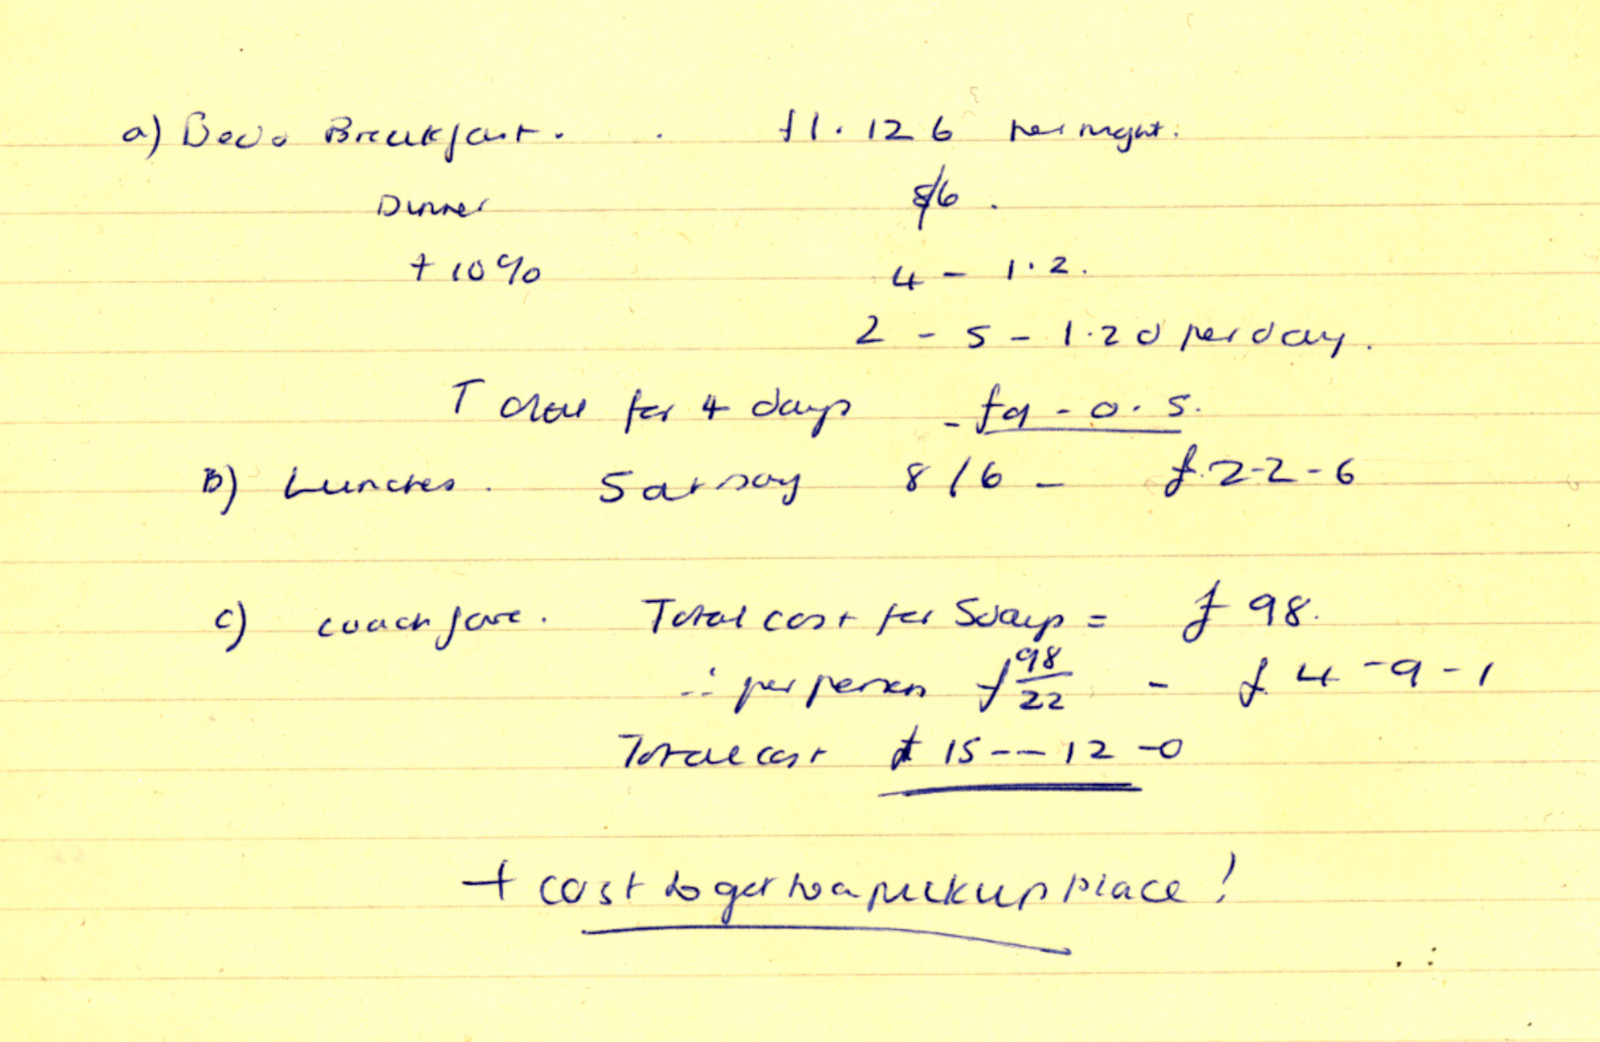 a) Bed & Breakfast. . £1. 12 6 per night.
Dinner 8/6 .
+ 10% 4 - 1.2.
2 - 5 - 1.2 d per day.
Total for 4 days - £9 - 0. 5.
B) Lunches. Satday 8/6 - £.2-2-6
c) coach fare. Total cost for 5days = £ 98.
∴ per person £98/22 - £ 4 -9 -1
Total cost £ 15 -- 12 -0
+ cost to get to a pickup place!